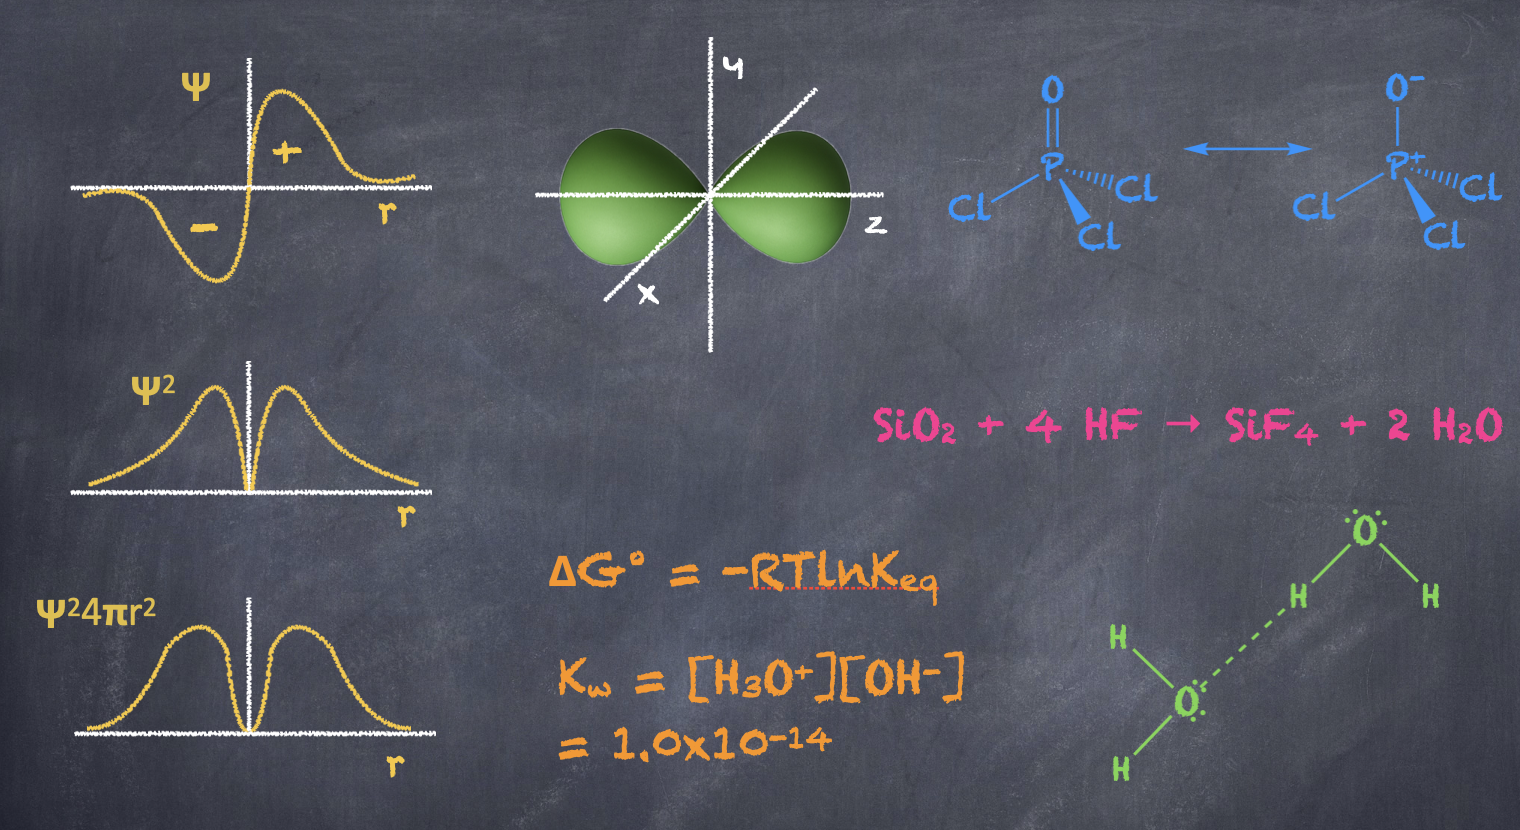 Ψ
+
−
r
Ψ²
r
Ψ²4πr²
r
y
z
x
O
P
Cl
Cl
Cl
O⁻
P⁺
Cl
Cl
Cl
SiO₂ + 4 HF → SiF₄ + 2 H₂O
ΔG° = -RTlnKeq
Kw = [H₃O⁺][OH⁻]
= 1.0x10⁻¹⁴
O
H
H
H
O
H